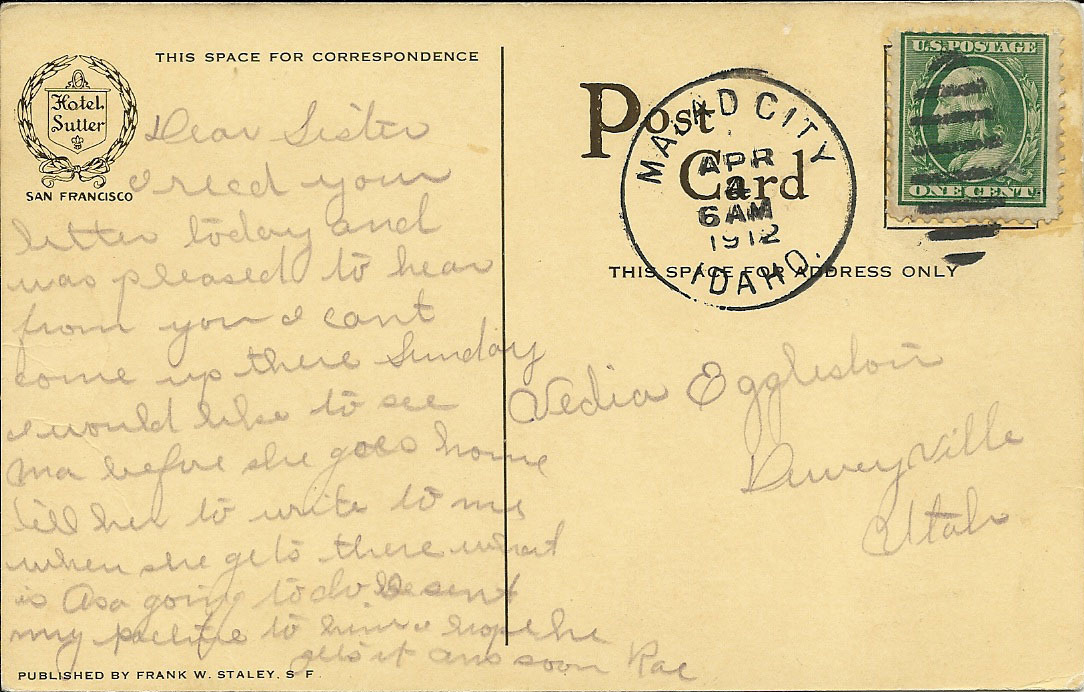 THIS SPACE FOR CORRESPONDENCE
Hotel
Sutter
SAN FRANCISCO
Dear Sister
I recd your
letter today and
was pleased to hear
from you I cant
come up there Sunday
I would like to see
Ma before she goes home
tell her to write to me
when she gets there what
is Asa going to do sent
my picture to him I hope he
gets it ans soon Rae
PUBLISHED BY FRANK W. STALEY, S F.
Post
Card
MALAD CITY
APR
4
6 AM
1912
IDAHO.
U.S. POSTAGE
ONE CENT
THIS SPACE FOR ADDRESS ONLY
Vedia Eggleston
Deweyville
Utah